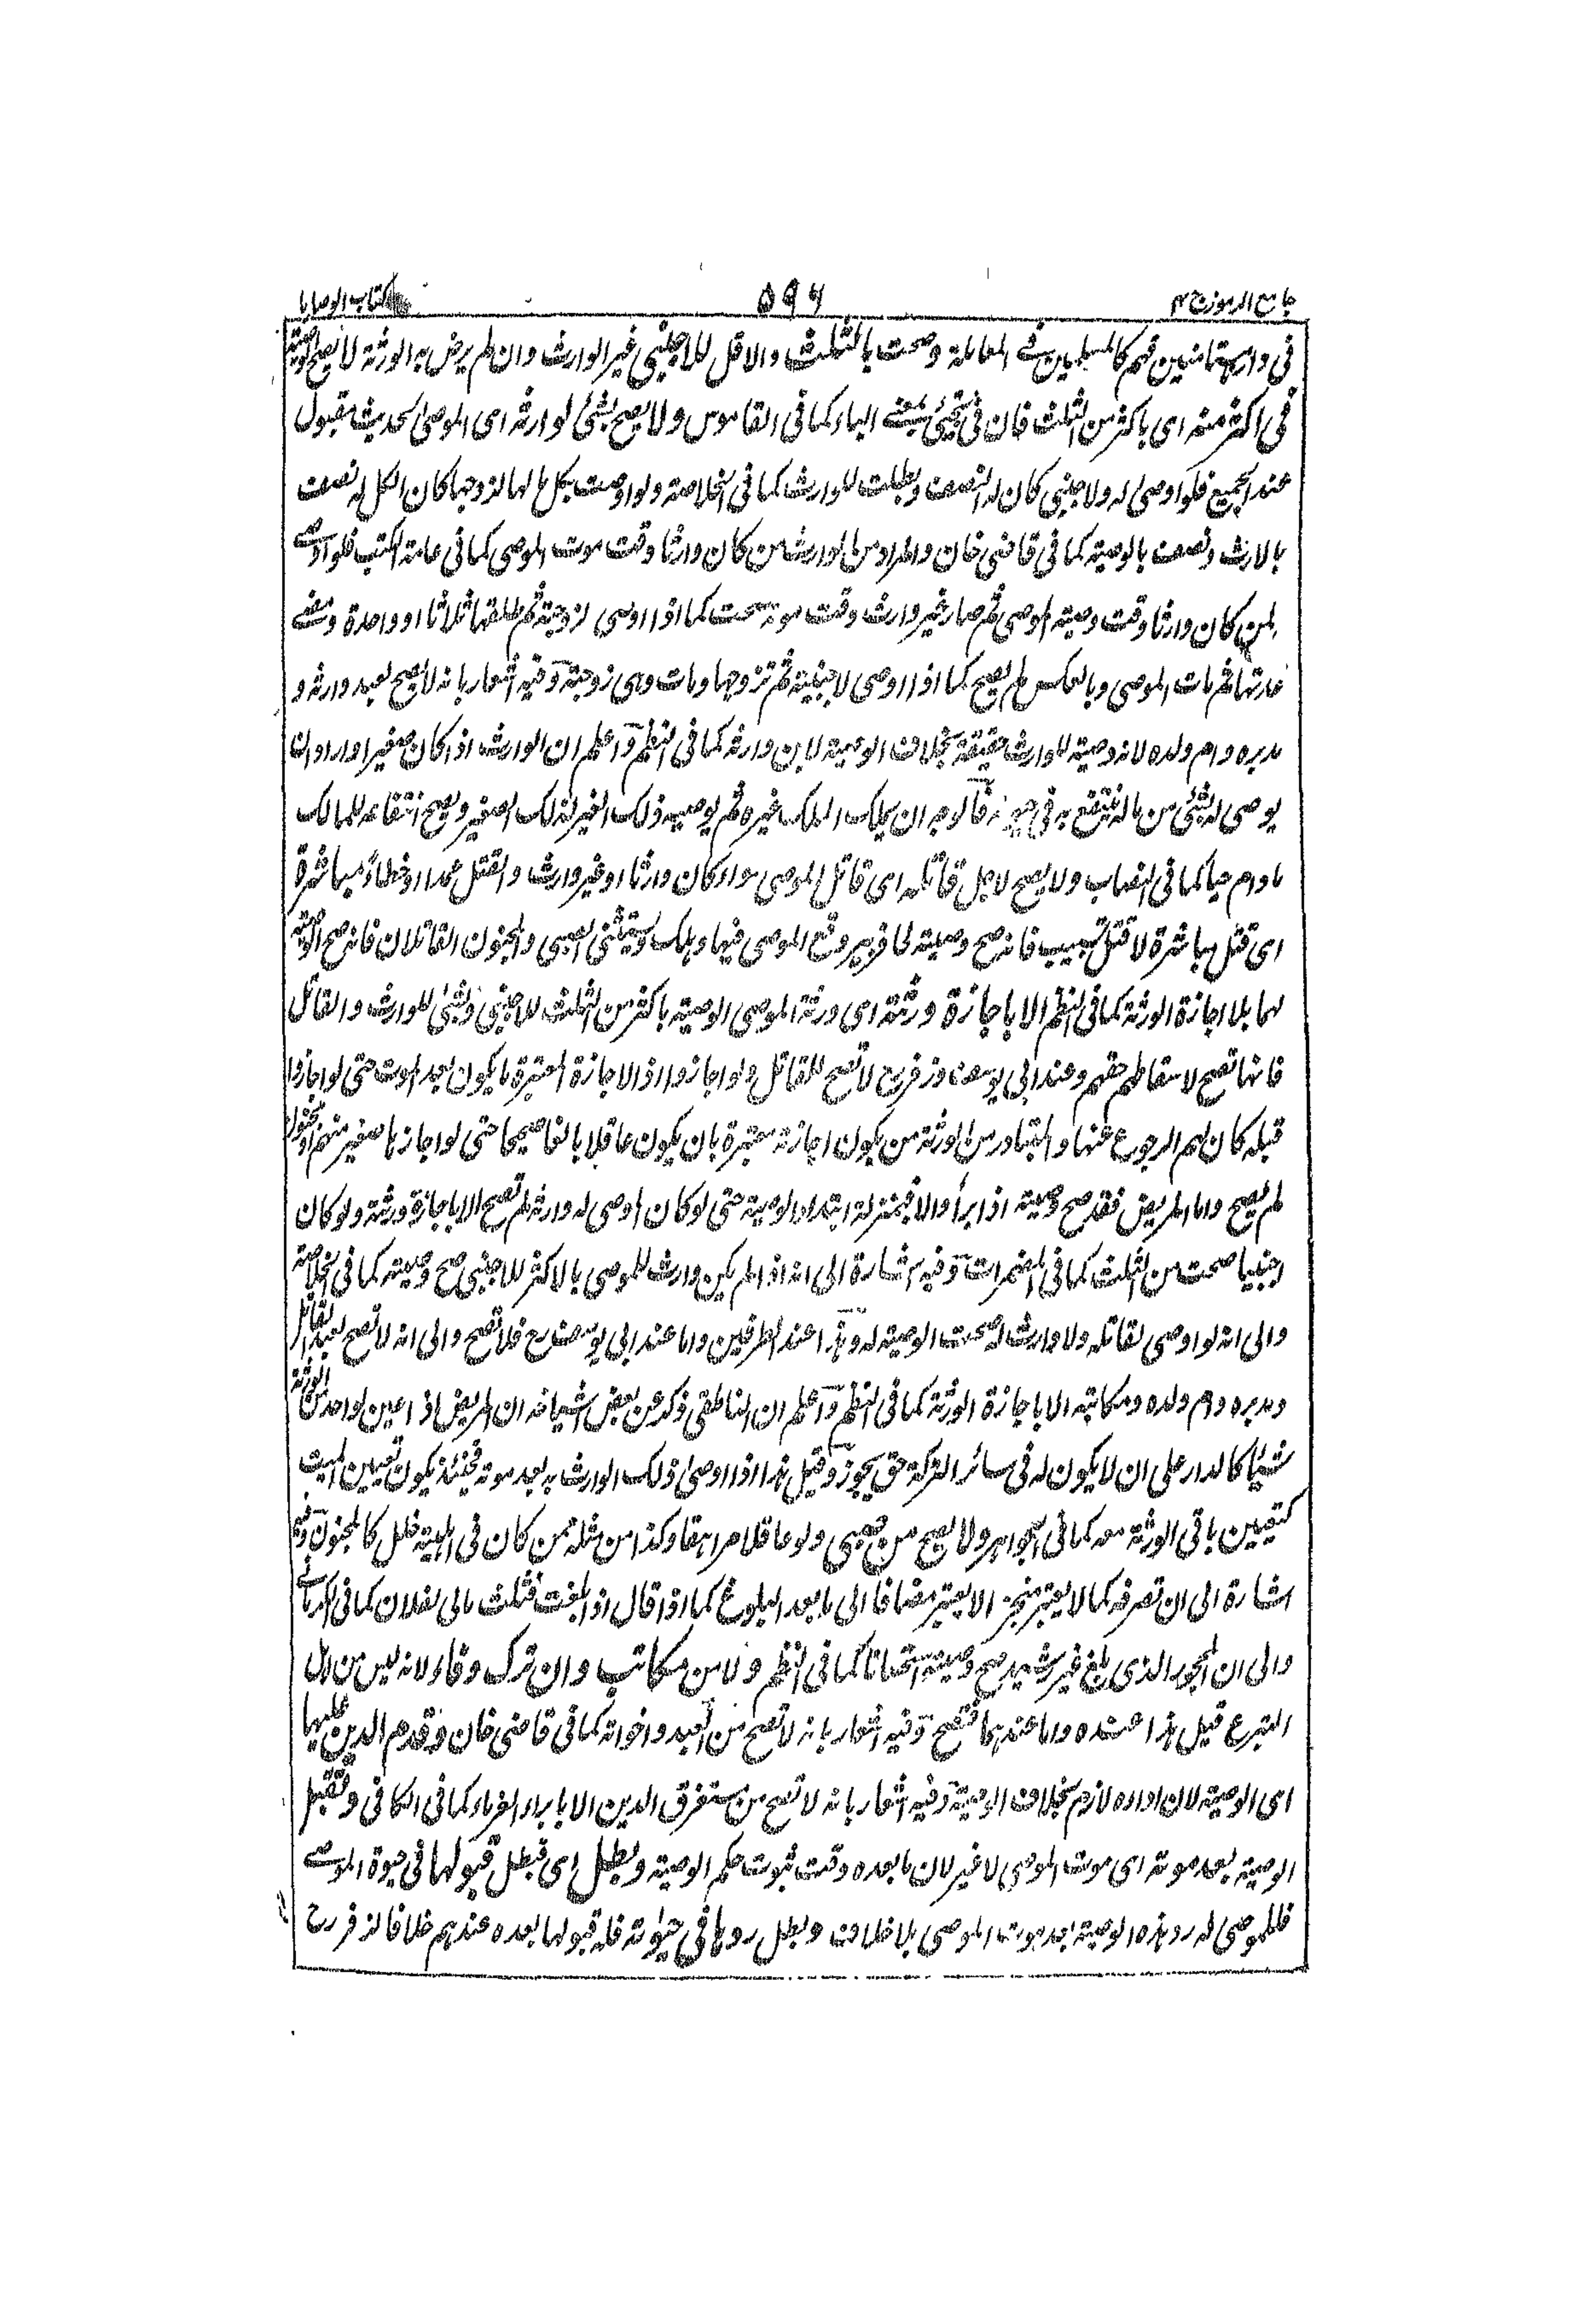 جامع الرموز ج ٢
٥٩٦
كتاب الوصايا
فى دارهم مستامنين فهم كالمسلمين فى المعاملة وصحت بالثلث والاقل للاجنبى غير الوارث وان لم يرض به الورثة لا تصح الوصية
فى اكثر منه اى باكثر من الثلث فان فى تجيئ بمعنى الباء كما فى القاموس ولا يصح بشئ لوارثه اى الموصى لحديث مقبول
عند الجميع فلو اوصى له ولاجنبى كان له النصف وبطلت للوارث كما فى الخلاصة ولو اوصت بكل مالها لزوجها كان الكل له نصف
بالارث ونصف بالوصية كما فى قاضى خان والمراد من الوارث من كان وارثا وقت موت الموصى كما فى عامة الكتب فلو اوصى
لمن كان وارثا وقت وصية الموصى ثم صار غير وارث وقت موته صحت كما اذا اوصى لزوجته ثم طلقها ثلاثا او واحدة ومضى
عدتها ثم مات الموصى وبالعكس لم يصح كما اذا اوصى لاجنبية ثم تزوجها ومات وهى زوجته وفيه اشعار بانه لا يصح لعبد وارثه و
مدبره وام ولده لانه وصية للوارث حقيقة بخلاف الوصية لابن وارثه كما فى النظم واعلم ان الوارث اذا كان صغيرا واراد ان
يوصى له بشئ من ماله ينتفع به فى فالوجه ان يملك الملك غيره ثم يوصيه ذلك الغير لذلك الصغير ويصح انتقاعه للمالك
مادام حيا كما فى النصاب ولا يصح لاجل قاتله اى قاتل الموصى سواء كان وارثا او غير وارث والقتل عمدا او خطاء مباشرة
اى قتل مباشرة لا قتل تسبيب فانه صح وصيته لحافر بير وقع الموصى فيها وهلك ويستثنى الصبى والمجنون القاتلان فانه صح الوصية
لهما بلا اجازة الورثة كما فى النظم الا باجازة ورثته اى ورثة الموصى الوصية باكثر من الثلث للاجنبى وبشئ للوارث والقاتل
فانها تصح لاسقاطهم حقهم وعند ابى يوسف وزفر رح لا تصح للقاتل ولو اجازوا اذ الاجازة المعتبرة ما يكون بعد الموت حتى لو اجازوا
قبله كان لهم الرجوع عنها والمتبادر من الورثة من يكون اجازته معتبرة بان يكون عاقلا بالغا صحيحا حتى لو اجازها صغير منهم او مجنون
لم يصح واما المريض فقد صح وصيته اذا برأ والا فبمنزلة ابتداء الوصية حتى لو كان اوصى له وارثه لم تصح الا باجازة ورثته ولو كان
اجنبيا صحت من الثلث كما فى المضمرات وفيه اشارة الى انه اذا لم يكن وارث للموصى بالاكثر للاجنبى صح وصيته كما فى الخلاصة
والى انه لو اوصى لقاتله ولا وارث له صحت الوصية له وهذا عند الطرفين واما عند ابى يوسف رح فلا تصح والى انه لا تصح لعبد القاتل
ومدبره وام ولده ومكاتبه الا باجازة الورثة كما فى النظم واعلم ان الناطفى ذكر عن بعض اشياخه ان المريض اذا عين لواحد من الورثة
شيئا كالدار على ان لا يكون له فى سائر التركة حق يجوز وقيل هذا اذا اوصى ذلك الوارث به بعد موته فحينئذ يكون تعيين الميت
كتعيين باقى الورثة معه كما فى الجواهر ولا يصح من صبى ولو عاقلا مراهقا وكذا من مثله ممن كان فى اهليته خلل كالمجنون وفيه
اشارة الى ان تصرفه كما لا يعتبر منجزا لا يعتبر مضافا الى ما بعد البلوغ كما اذا قال اذا بلغت فثلث مالى لفلان كما فى الكرمانى
والى ان المحجور الذى بلغ غير رشيد صح وصيته استحسانا كما فى النظم ولا من مكاتب وان ترك وفاء لانه ليس من اهل
التبرع قيل هذا عنده واما عندهما فتصح وفيه اشعار بانه لا تصح من العبد واخواته كما فى قاضى خان وقدم الدين عليها
اى الوصية لان اداءه لازم بخلاف الوصية وفيه اشعار بانه لا تصح من مستغرق الدين الا بابراء الغرماء كما فى الكافى وتقبل
الوصية بعد موته اى موت الموصى لا غير لان ما بعده وقت ثبوت حكم الوصية وبطل اى فبطل قبولها فى حيوة الموصى
فللموصى له رد هذه الوصية بعد موت الموصى بلا خلاف وبطل ردها فى حيوته فله قبولها بعده عندهم خلافا لزفر رح